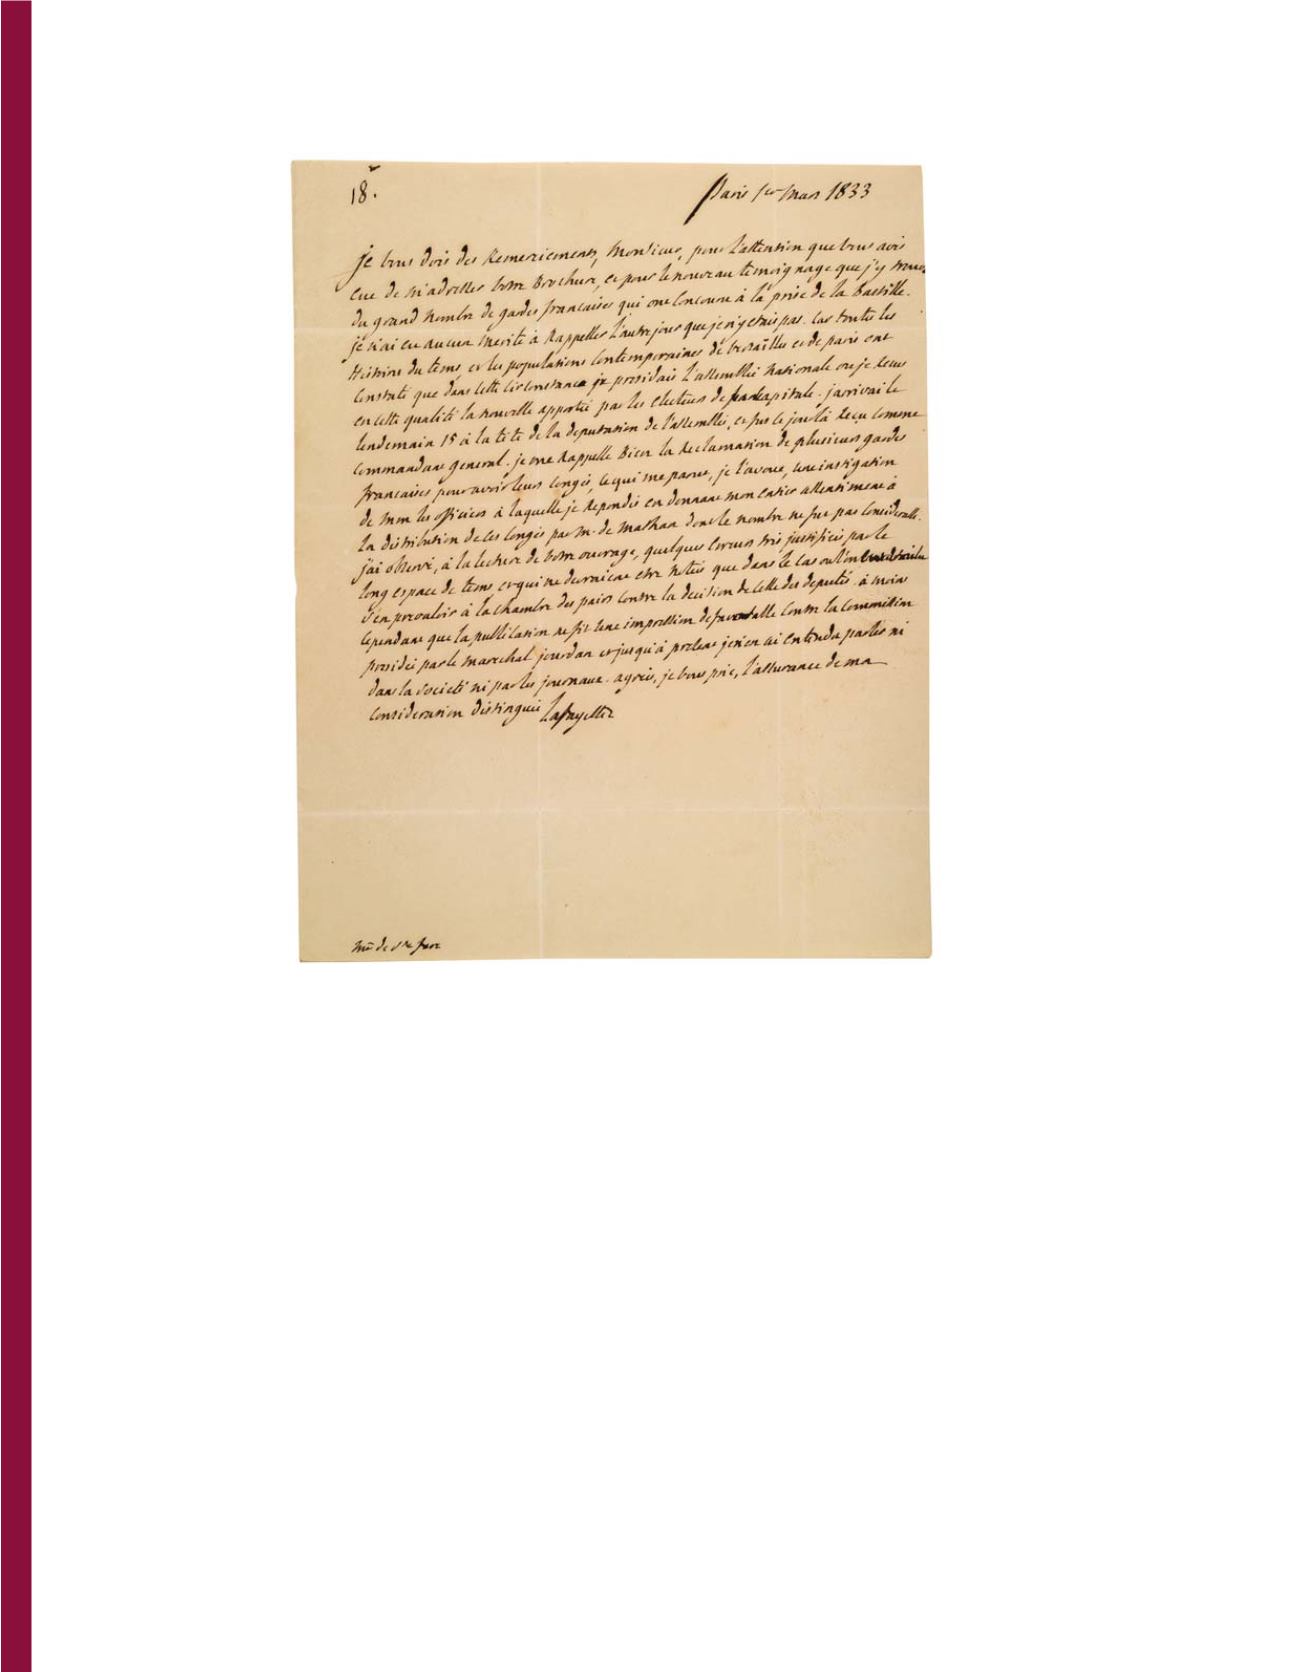 18.
Paris 1er mars 1833
je vous dois des Remerciements, Monsieur, pour l'attention que vous avés
eue de m'adresser votre Brochure, et pour le nouveau temoignage que j'y trouve
du grand nombre de gardes françaises qui ont concouru à la prise de la Bastille.
je n'ai eu aucun merite à Rappeller l'autre jour que je n'y etais pas. car toutes les
Histoires du tems et les populations contemporaines de versailles et de paris ont
constaté que dans cette circonstance je presidais l'assemblée Nationale ou je recus
en cette qualité la nouvelle apportée par les electeurs de la capitale. j'arrivai le
lendemain 15 à la tete de la deputation de l'assemblée, et fus ce jour là Reçu comme
commandant general. je me Rappelle Bien la Reclamation de plusieurs gardes
françaises pour avoir leurs congés, ce qui me parut, je l'avoue, une instigation
de mm les officiers à laquelle je Repondis en donnant mon entier assentiment à
la distribution de ces congés par M. de Mathan dont le nombre ne fut pas considerable.
j'ai observé, à la lecture de votre ouvrage, quelques erreurs très justifiées par le
long espace de tems et qui ne devraient etre notées que dans le cas ou l'on voudrait
s'en prevaloir à la chambre des pairs contre la decision de celle des deputés. à moins
cependant que la publication ne fit une impression defavorable contre la commission
presidée par le marechal jourdan et jusqu'à present je n'en ai entendu parler ni
dans la société ni par les journaux. agreés, je vous prie, l'assurance de ma
consideration distinguée Lafayette